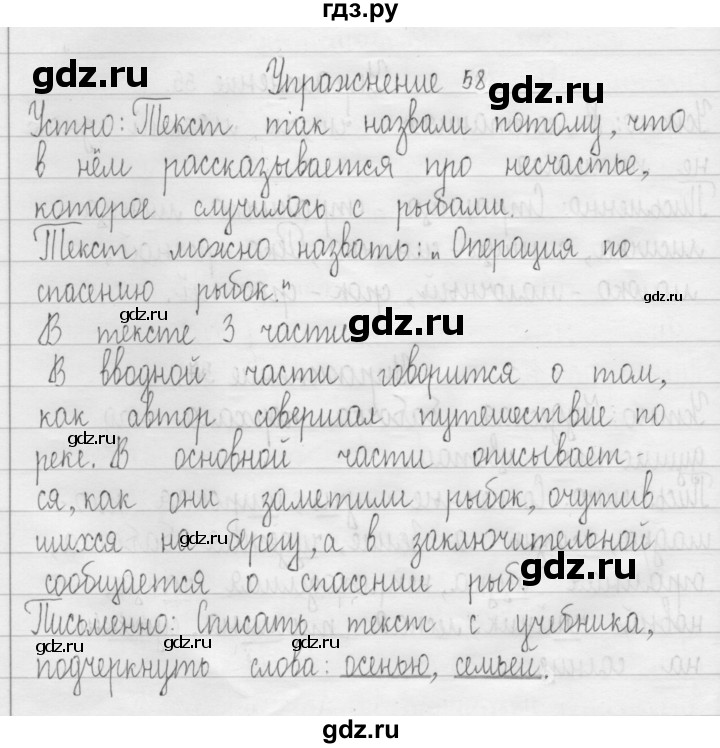 гдз.ру
Упражнение 58
Устно: Текст так назвали потому, что
в нём рассказывается про несчастье,
которое случилось с рыбами.
Текст можно назвать: „Операция по
спасению рыбок."
В тексте 3 части
В вводной части говорится о том,
как автор совершал путешествие по
реке. В основной части описывает-
ся, как они заметили рыбок, очутив
шихся на берегу, а в заключительной
сообщается о спасении рыб.
Письменно: Списать текст с учебника,
подчеркнуть слова: осенью, семьей.
gdz.ru
gdz.ru
gdz.ru
gdz.ru
gdz.ru
gdz.ru
gdz.ru
gdz.ru
gdz.ru
gdz.ru
gdz.ru
gdz.ru